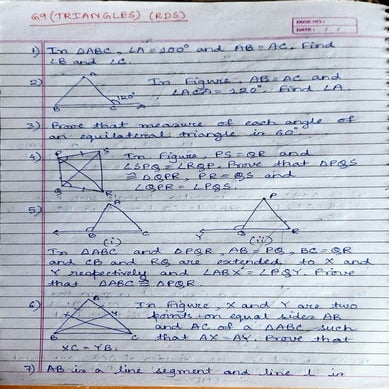 G9 (TRIANGLES) (RDS)
PAGE NO.:
DATE: / /
1) In ΔABC, ∠A = 100° and AB = AC. Find
∠B and ∠C.
2) In Figure, AB = AC and
∠ACD = 120°. Find ∠A.
A
120°
B C
3) Prove that measure of each angle of
an equilateral triangle is 60°.
4) In Figure, PS = QR and
∠SPQ = ∠RQP. Prove that ΔPQS
≅ ΔQPR, PR = QS and
∠QPR = ∠PQS.
5)
A P
B C Y R
(i) (ii)
In ΔABC and ΔPQR, AB = PQ, BC = QR
and CB and RQ are extended to X and
Y respectively and ∠ABX = ∠PQY. Prove
that ΔABC ≅ ΔPQR.
6) In Figure, X and Y are two
points on equal sides AB
and AC of a ΔABC such
that AX = AY. Prove that
XC = YB.
A
B C
7) AB is a line segment and line l is